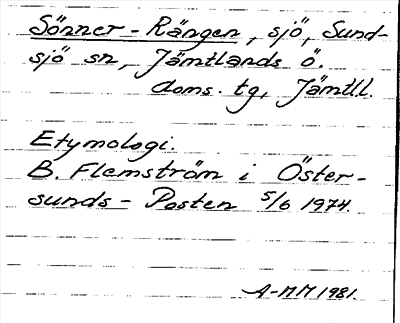 Sönner-Rängen, sjö, Sund-
sjö sn, Jämtlands ö.
doms. tg, Jämtl.l.
Etymologi.
B. Flemström i Öster-
sunds-Posten 5/6 1974.
A-MM 1981.